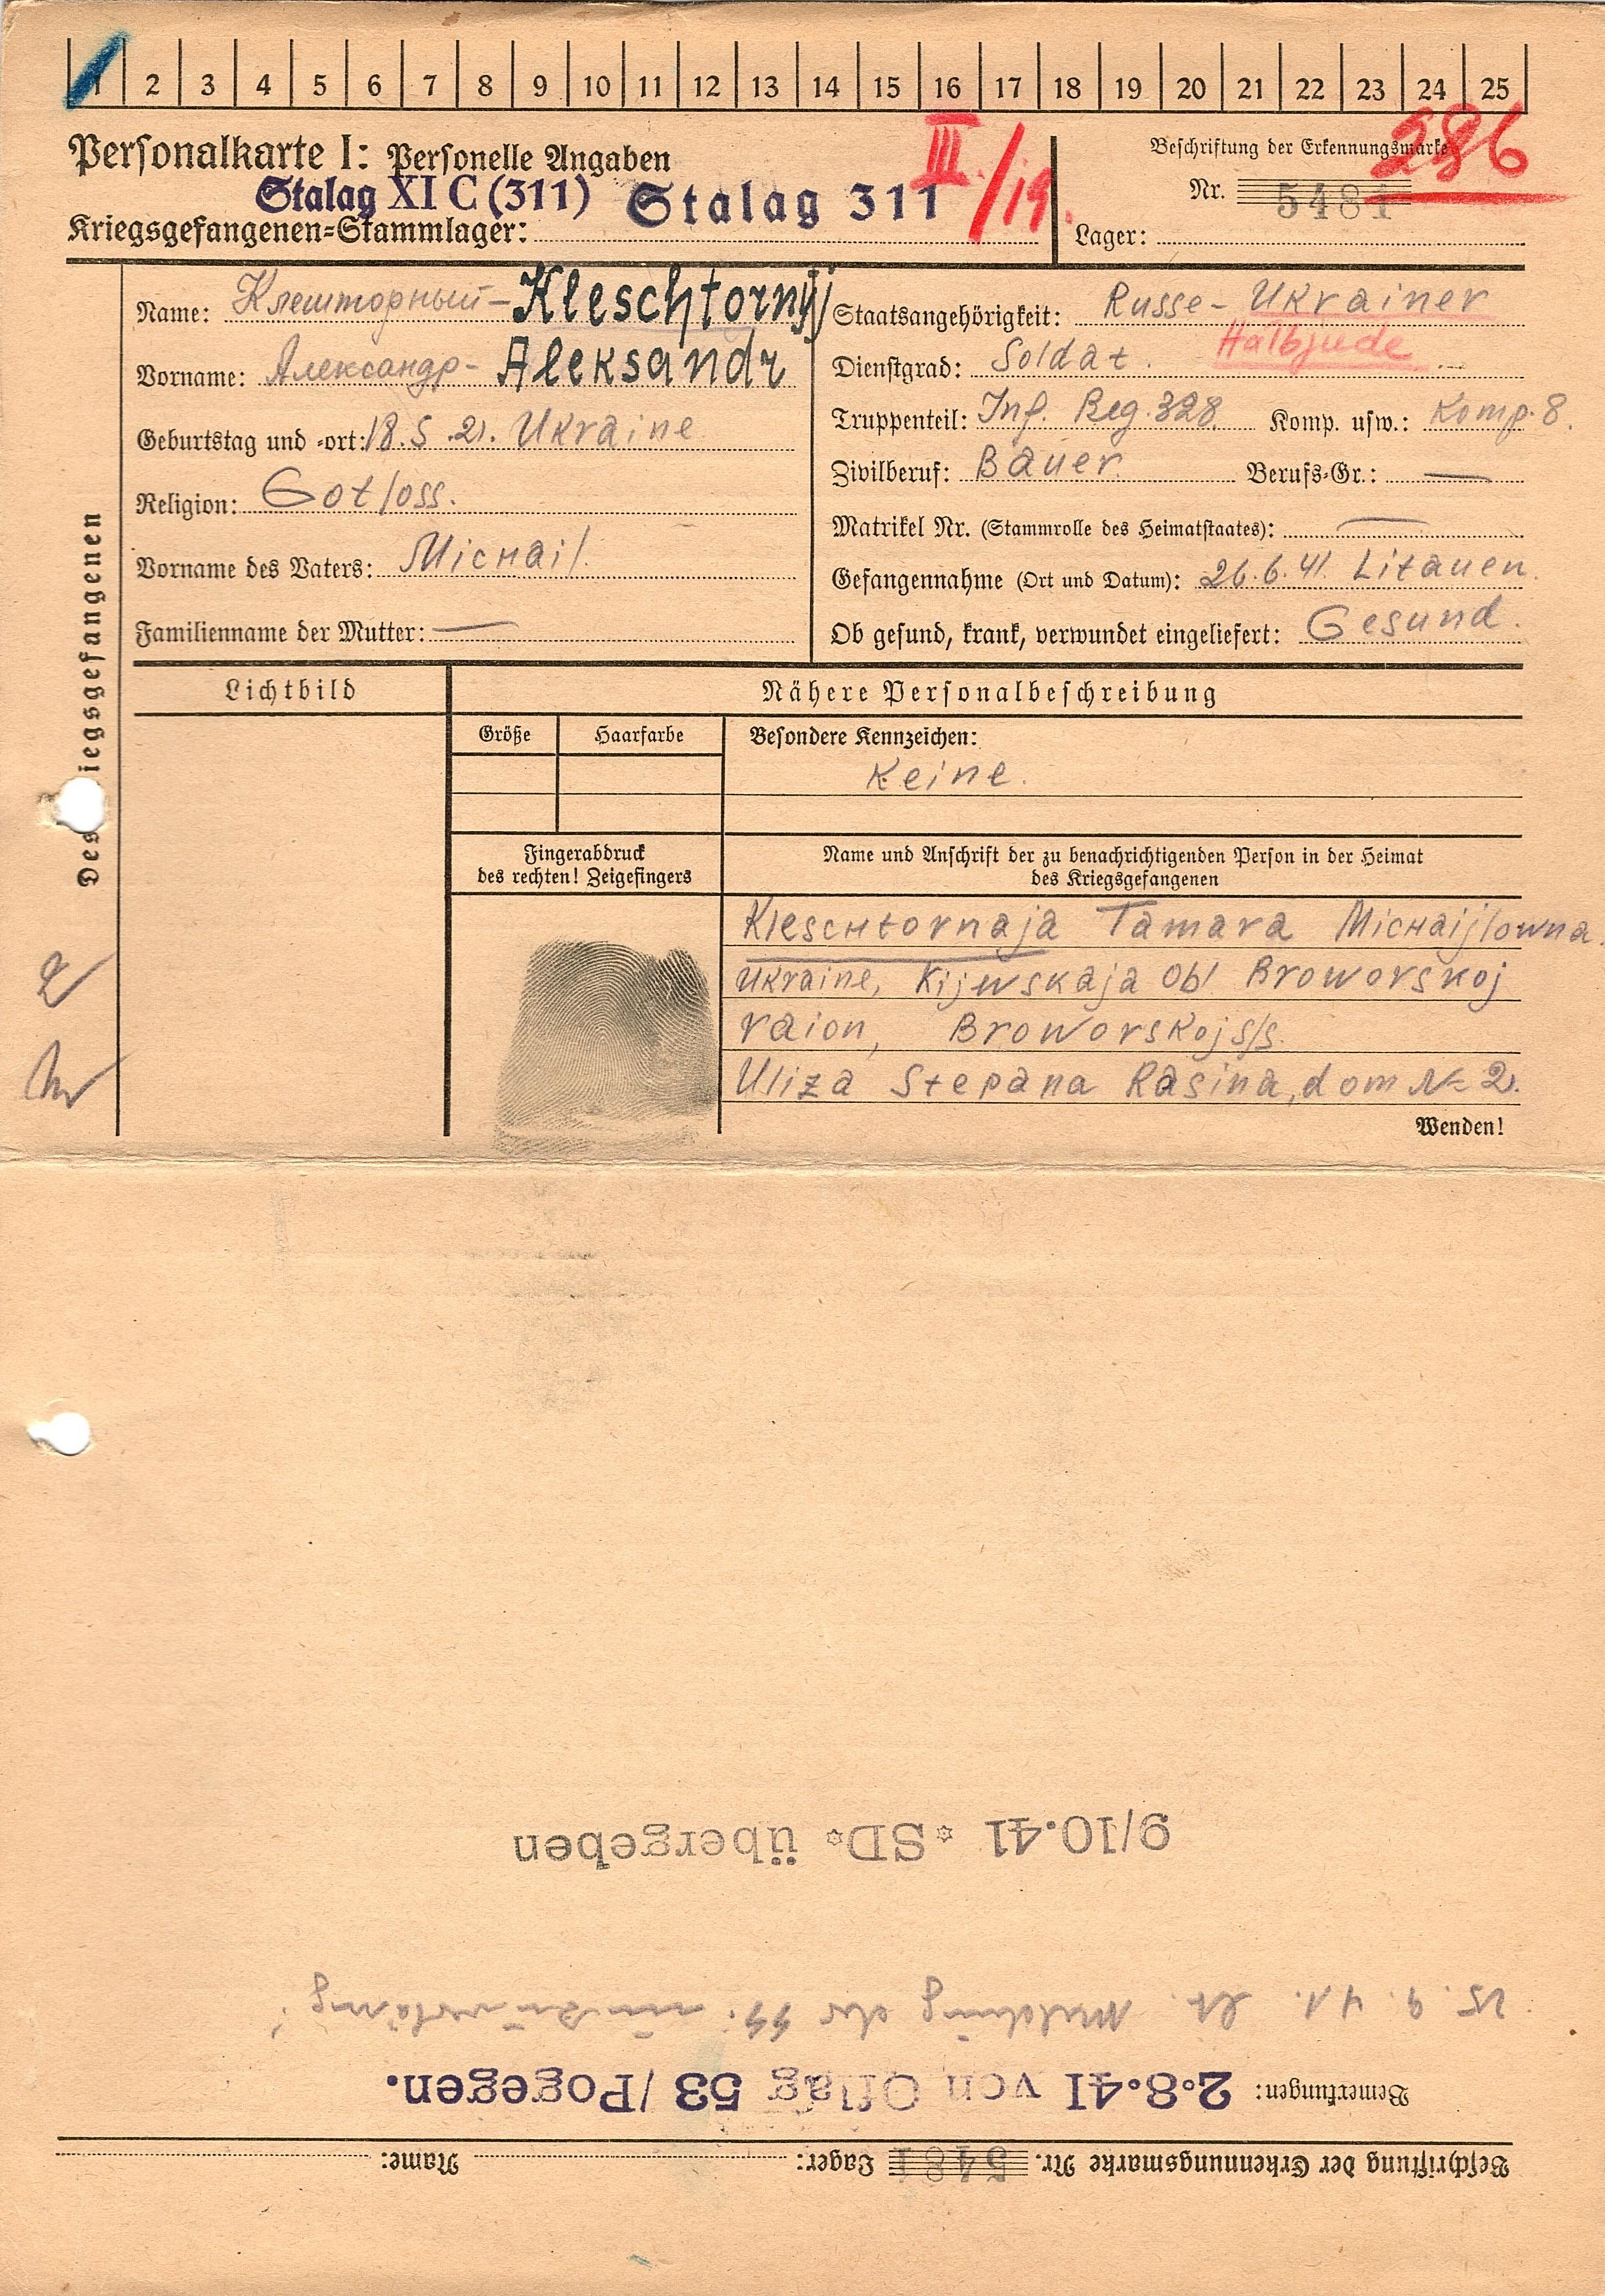 1 2 3 4 5 6 7 8 9 10 11 12 13 14 15 16 17 18 19 20 21 22 23 24 25
Personalkarte I: Personelle Angaben
III/19.
Beschriftung der Erkennungsmarke
286
Stalag XI C (311) Stalag 311
Nr. 5481
Kriegsgefangenen-Stammlager:
Lager:
Des Kriegsgefangenen
Name: Клешторный - Kleschtornyj
Vorname: Александр - Aleksandr
Geburtstag und -ort: 18.5.21. Ukraine
Religion: Gotloss.
Vorname des Vaters: Michail.
Familienname der Mutter: —
Staatsangehörigkeit: Russe - Ukrainer
Halbjude
Dienstgrad: Soldat.
Truppenteil: Inf. Reg. 328. Komp. usw.: Komp. 8.
Zivilberuf: Bauer. Berufs-Gr.: —
Matrikel Nr. (Stammrolle des Heimatstaates): —
Gefangennahme (Ort und Datum): 26.6.41. Litauen.
Ob gesund, krank, verwundet eingeliefert: Gesund.
Lichtbild
Nähere Personalbeschreibung
Größe
Haarfarbe
Besondere Kennzeichen:
Keine.
Fingerabdruck
des rechten! Zeigefingers
Name und Anschrift der zu benachrichtigenden Person in der Heimat
des Kriegsgefangenen
Kleschtornaja Tamara Michaijlowna.
Ukraine, Kijewskaja Obl Broworskoj
raion, Broworskoj s/s.
Uliza Stepana Rasina, dom № 2.
Wenden!
Beschriftung der Erkennungsmarke Nr. 5481 Lager: Name:
Bemerkungen: 2.8.41 von Oflag 53 / Pogegen.
25. 9. 41. Lt. Meldung der SS.
9/10.41 * SD* übergeben